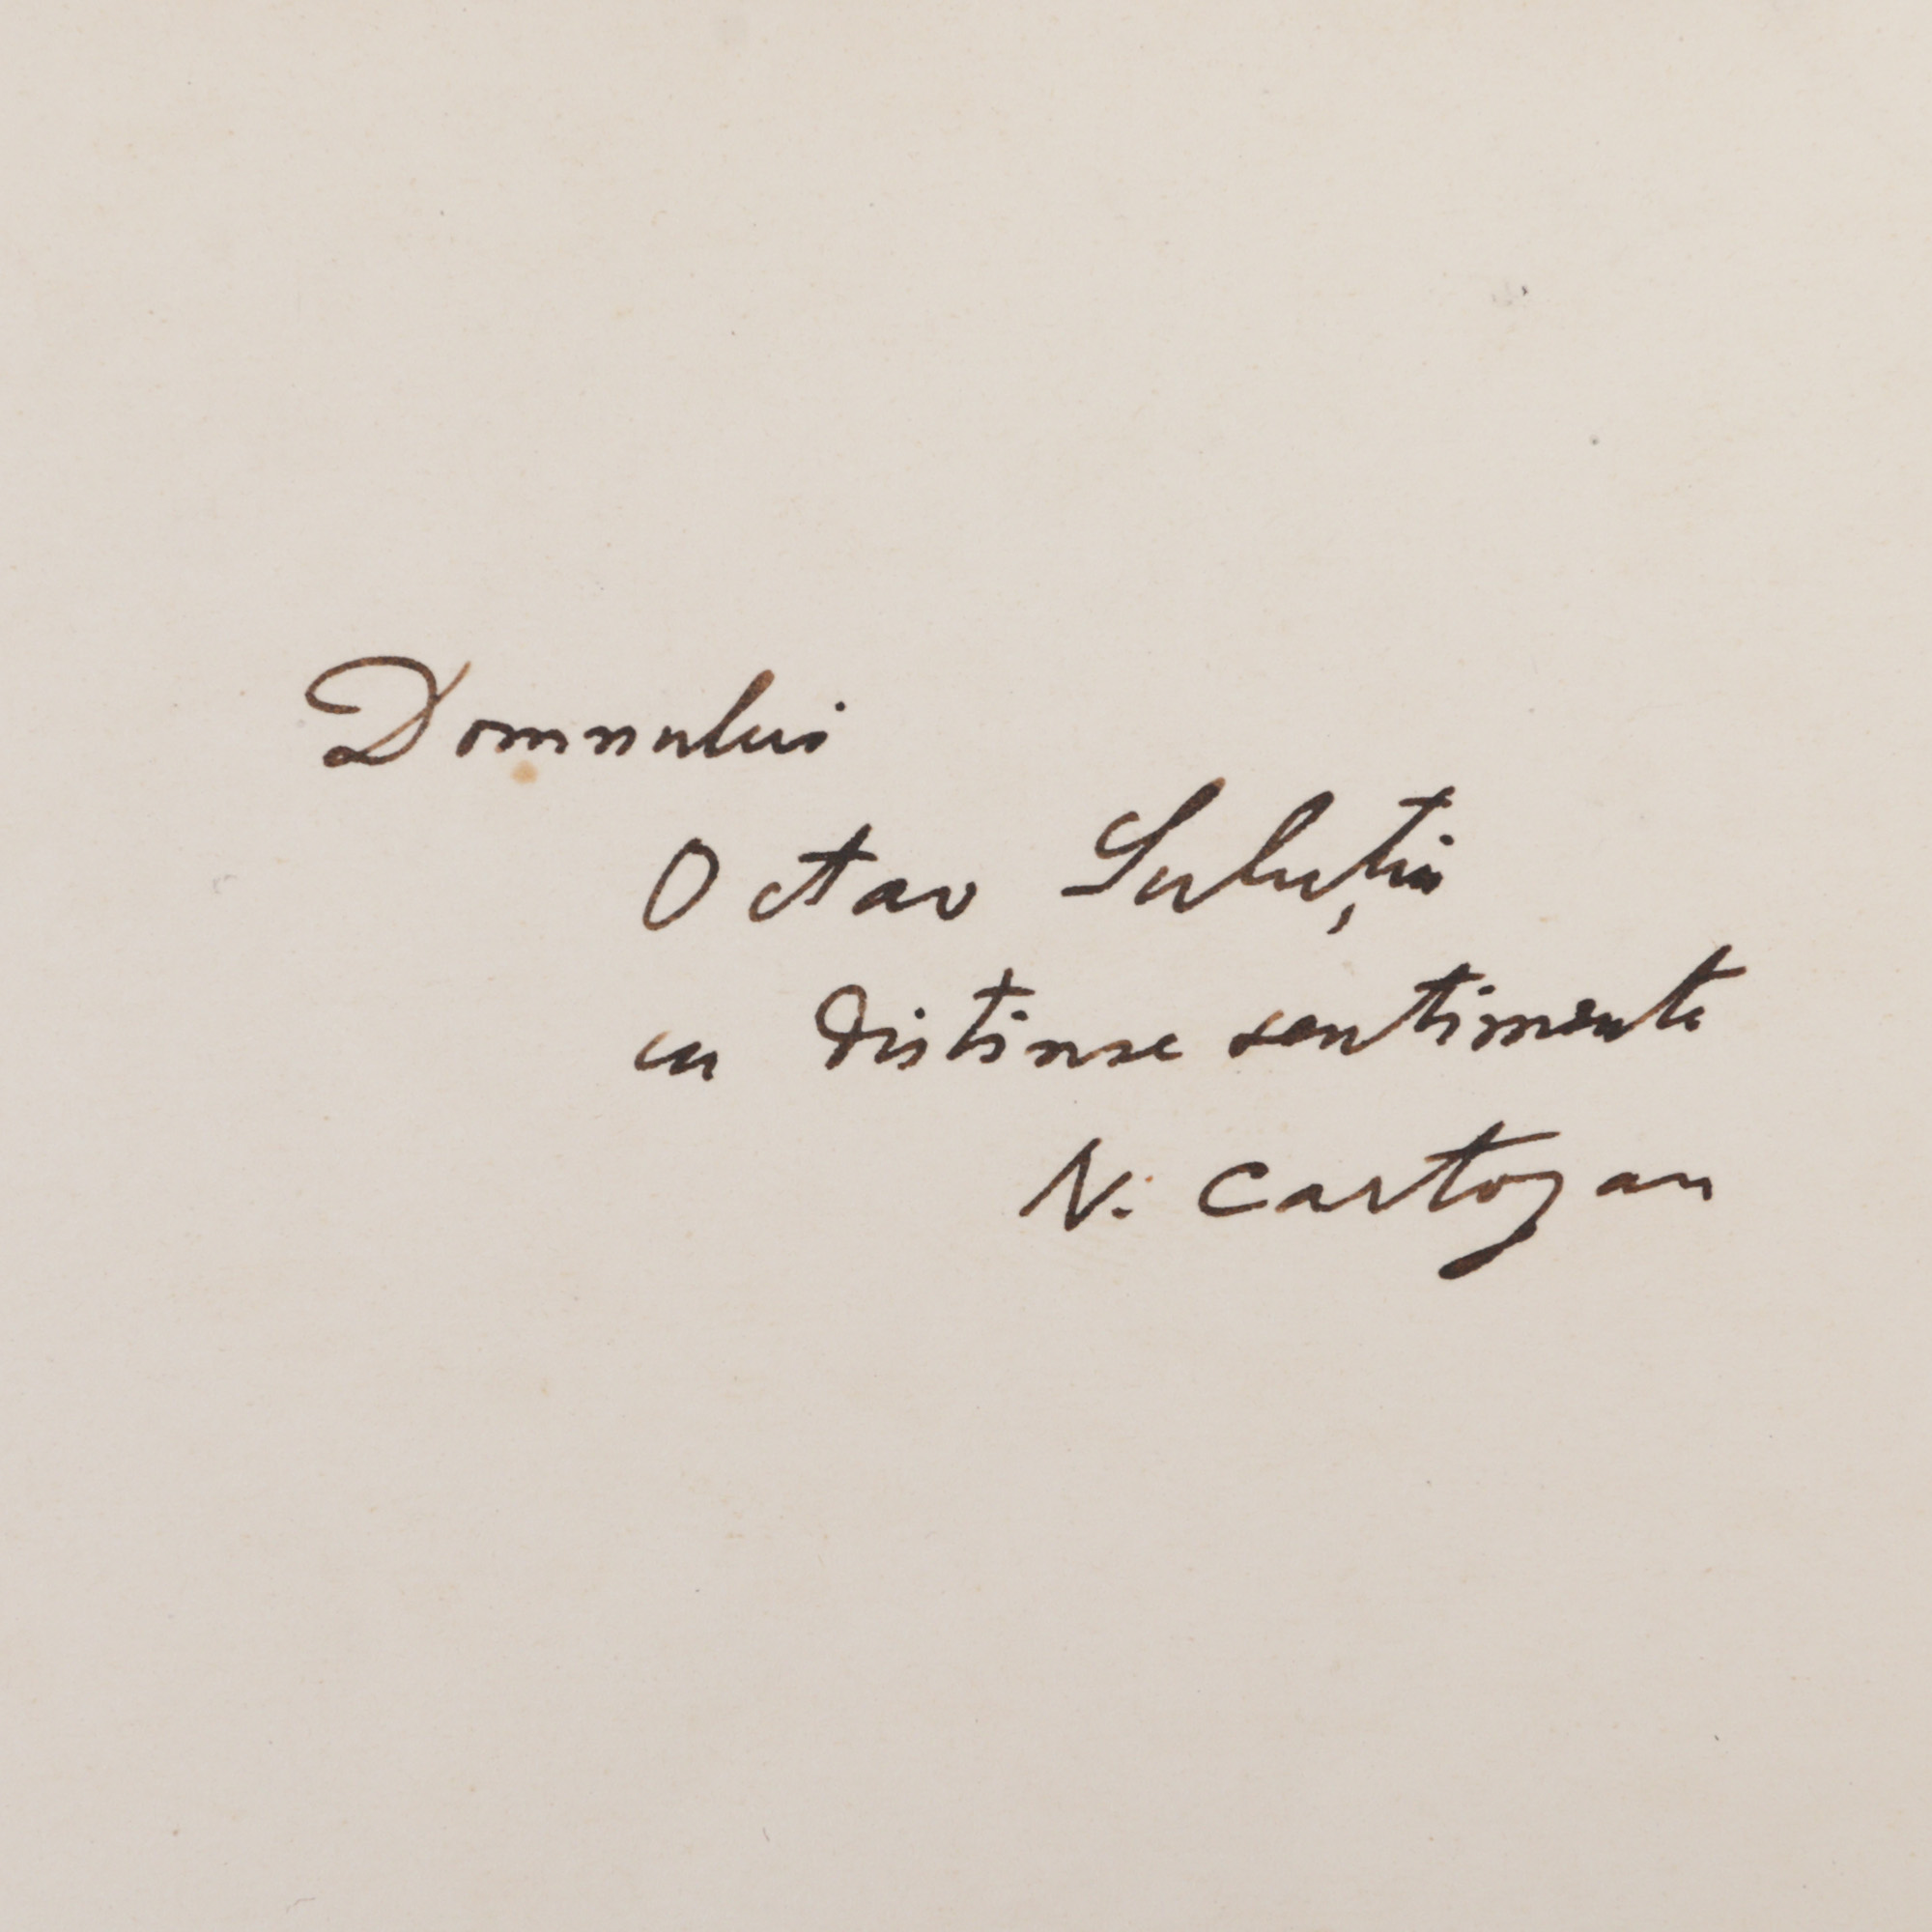 Domnului
Octav Suluțiu
cu distinse sentimente
N. Cartojan